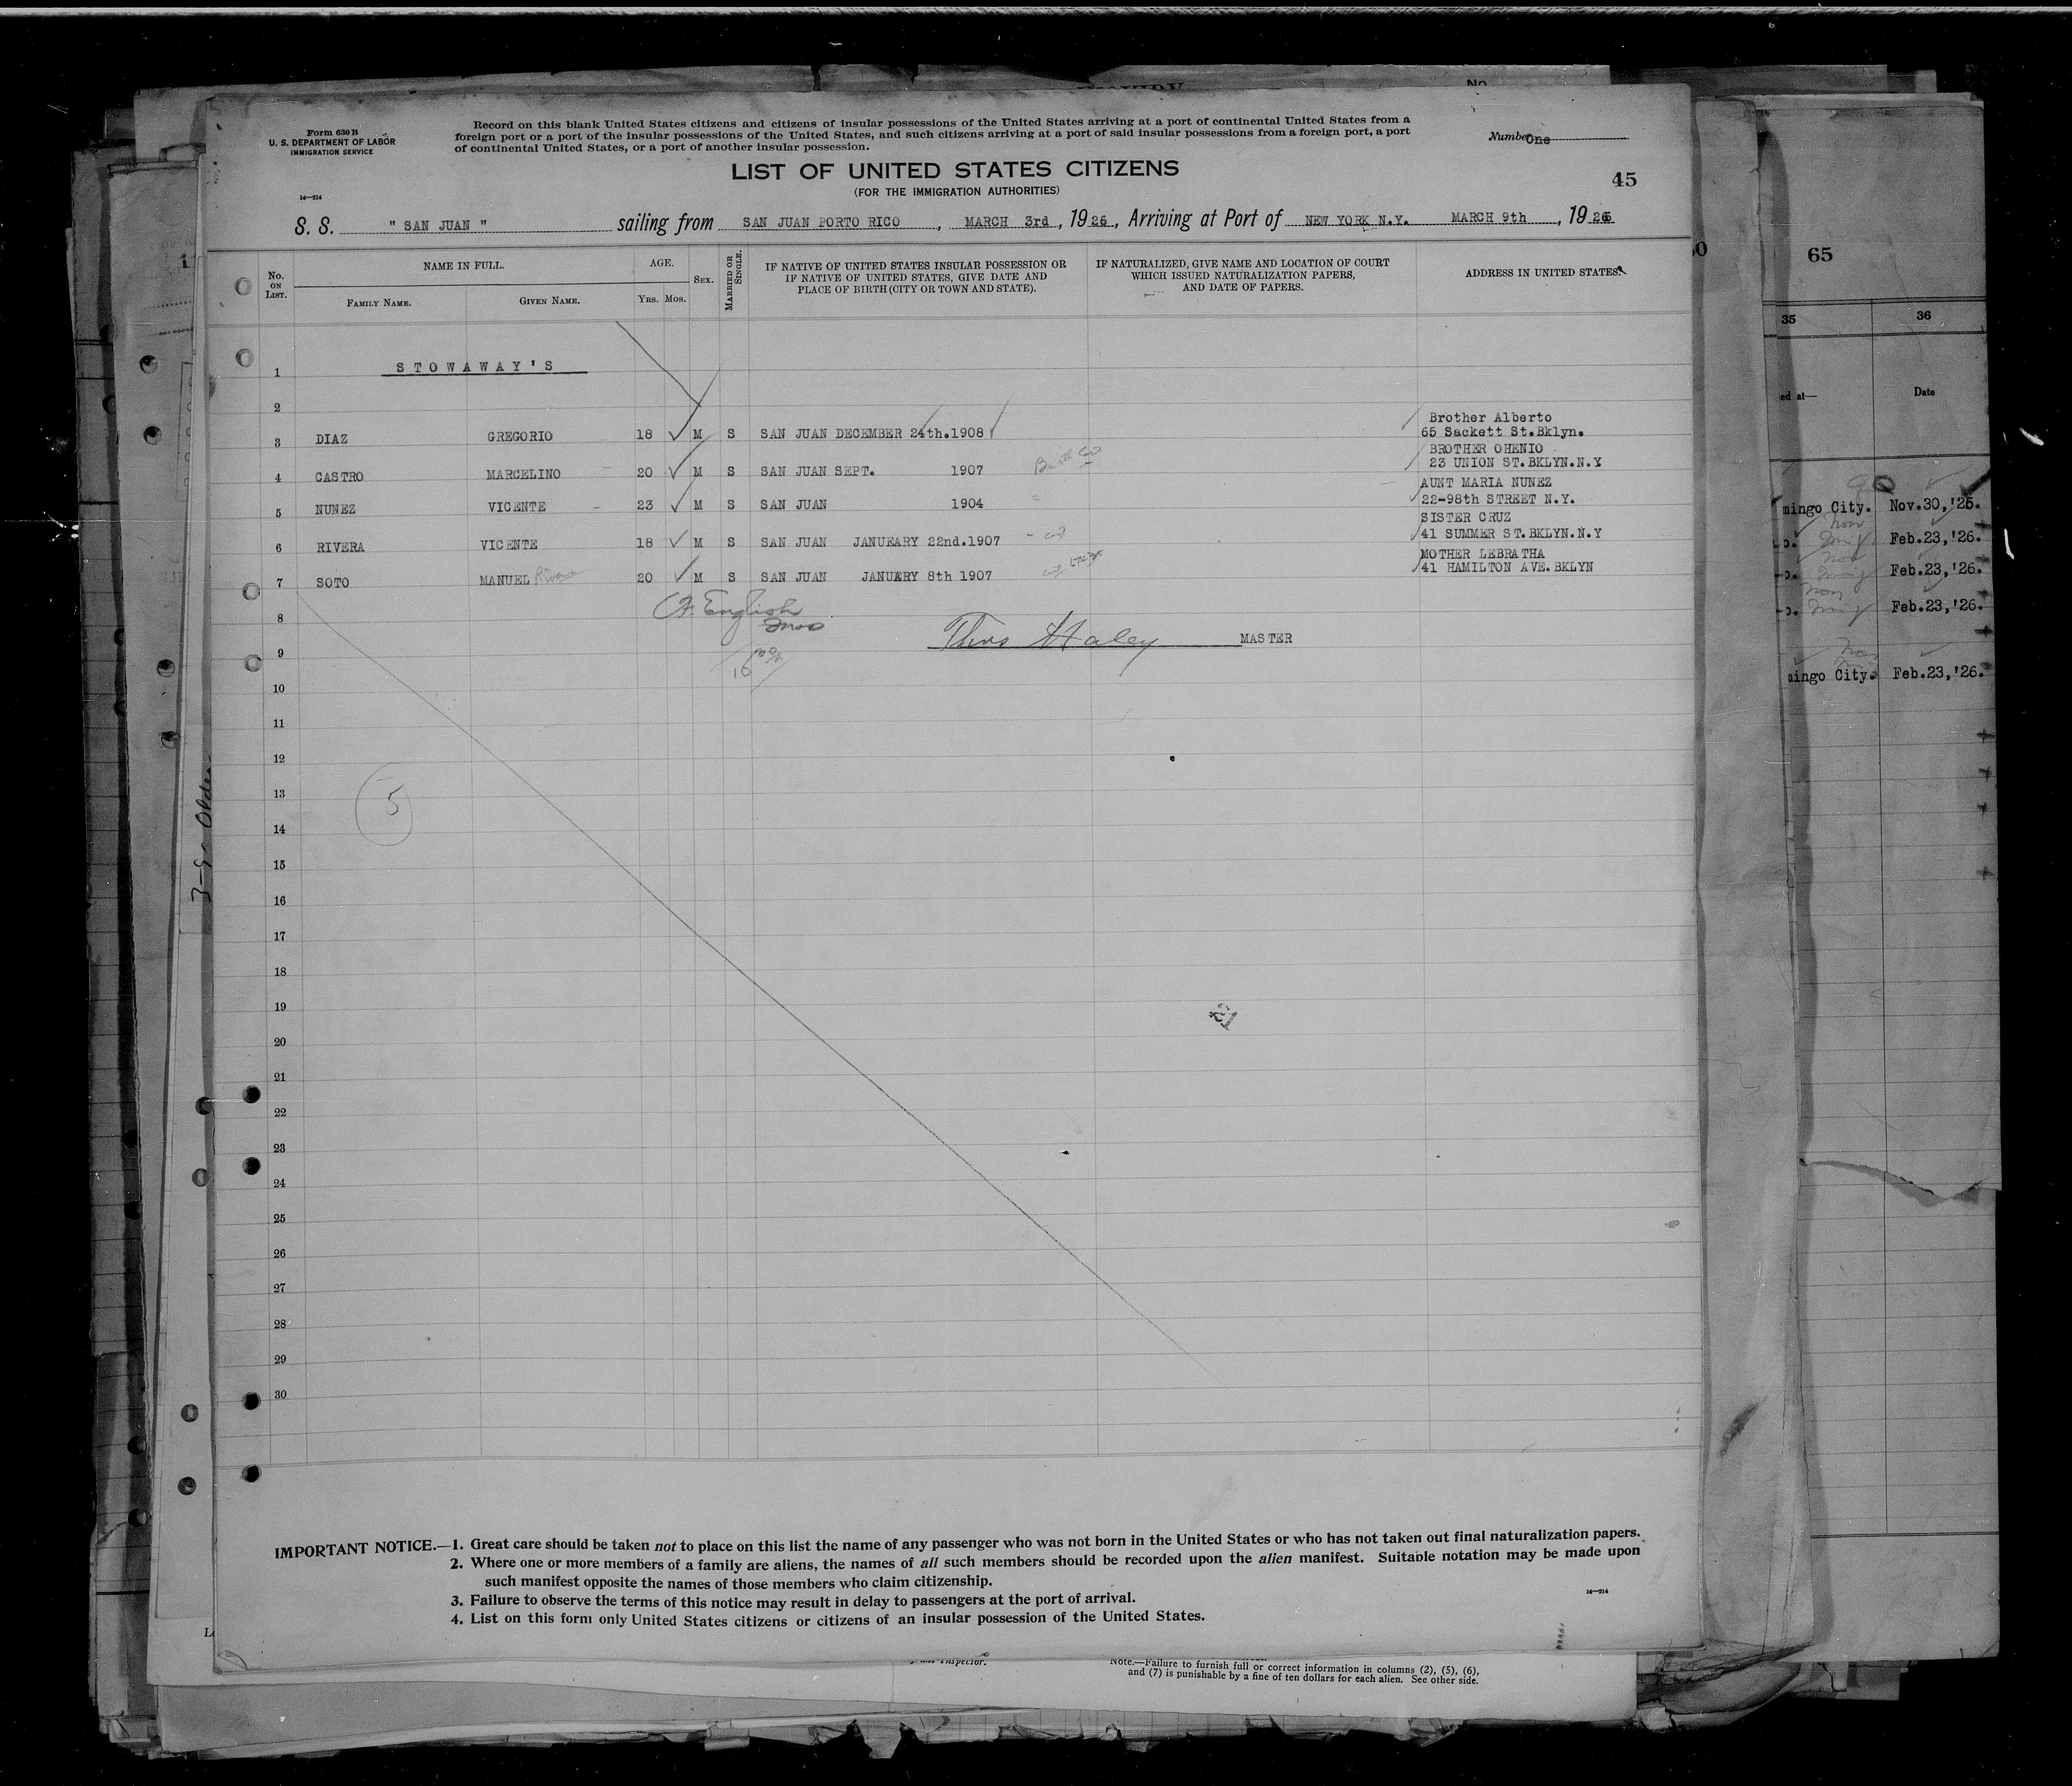 Form 630 B
U. S. DEPARTMENT OF LABOR
IMMIGRATION SERVICE
Record on this blank United States citizens and citizens of insular possessions of the United States arriving at a port of continental United States from a
foreign port or a port of the insular possessions of the United States, and such citizens arriving at a port of said insular possessions from a foreign port, a port
of continental United States, or a port of another insular possession.
Number One
LIST OF UNITED STATES CITIZENS
(FOR THE IMMIGRATION AUTHORITIES)
45
14—214
S. S. " SAN JUAN " sailing from SAN JUAN PORTO RICO, MARCH 3rd, 1926, Arriving at Port of NEW YORK N.Y. MARCH 9th, 1926
No. ON LIST.
NAME IN FULL.
FAMILY NAME.
GIVEN NAME.
AGE.
YRS. MOS.
SEX.
MARRIED OR SINGLE.
IF NATIVE OF UNITED STATES INSULAR POSSESSION OR
IF NATIVE OF UNITED STATES, GIVE DATE AND
PLACE OF BIRTH (CITY OR TOWN AND STATE).
IF NATURALIZED, GIVE NAME AND LOCATION OF COURT
WHICH ISSUED NATURALIZATION PAPERS,
AND DATE OF PAPERS.
ADDRESS IN UNITED STATES.
1 STOWAWAY'S
2
Brother Alberto
3 DIAZ GREGORIO 18 M S SAN JUAN DECEMBER 24th.1908 65 Sackett St.Bklyn.
BROTHER OHENIO
4 CASTRO MARCELINO 20 M S SAN JUAN SEPT. 1907 23 UNION ST.BKLYN.N.Y
AUNT MARIA NUNEZ
5 NUNEZ VICENTE 23 M S SAN JUAN 1904 22-98th STREET N.Y.
SISTER CRUZ
6 RIVERA VICENTE 18 M S SAN JUAN JANUEARY 22nd.1907 41 SUMMER ST.BKLYN.N.Y
MOTHER LEBRATHA
7 SOTO MANUEL Rivera 20 M S SAN JUAN JANUARY 8th 1907 41 HAMILTON AVE.BKLYN
8 English
Thos Haley MASTER
9
10
11
12
13
5
14
15
16
17
18
19
20
21
22
23
24
25
26
27
28
29
30
IMPORTANT NOTICE.—1. Great care should be taken not to place on this list the name of any passenger who was not born in the United States or who has not taken out final naturalization papers.
2. Where one or more members of a family are aliens, the names of all such members should be recorded upon the alien manifest. Suitable notation may be made upon
such manifest opposite the names of those members who claim citizenship.
3. Failure to observe the terms of this notice may result in delay to passengers at the port of arrival.
4. List on this form only United States citizens or citizens of an insular possession of the United States.
14—214
Inspector.
Note.—Failure to furnish full or correct information in columns (2), (5), (6),
and (7) is punishable by a fine of ten dollars for each alien. See other side.
65
35
36
ed at—
Date
mingo City. Nov.30,'25.
Feb.23,'26.
Feb.23,'26.
Feb.23,'26.
mingo City. Feb.23,'26.